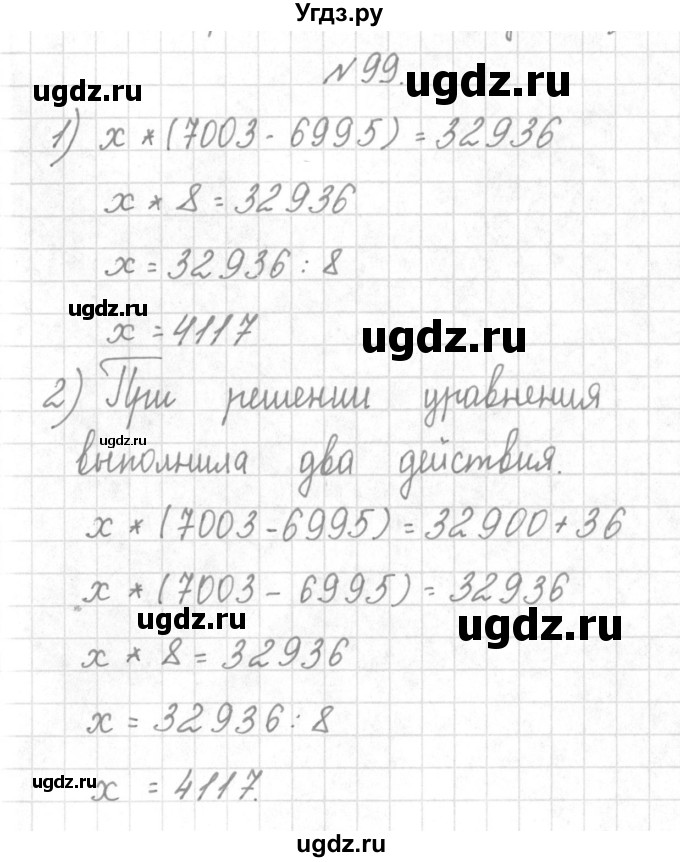 Угдз.ру
№99.
ugdz.ru
ugdz.ru
1) x * (7003 - 6995) = 32936
x * 8 = 32936
x = 32936 : 8
ugdz.ru
x = 4117
ugdz.ru
2) При решении уравнения
ugdz.ru
выполнила два действия.
x * (7003 - 6995) = 32900 + 36
x * (7003 - 6995) = 32936
ugdz.ru
ugdz.ru
x * 8 = 32936
x = 32936 : 8
ugdz.ru
x = 4117.
ugdz.ru